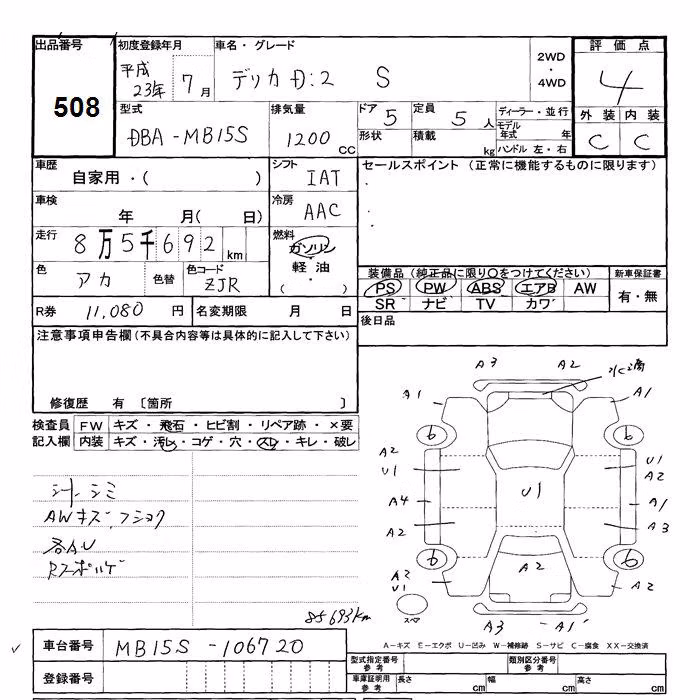 出品番号
508
初度登録年月
平成
23年 7月
車名・グレード
デリカD:2 S
2WD
・
4WD
評価点
4
外装 内装
C C
型式
DBA-MB15S
排気量
1200 CC
ドア 5
定員 5人
形状
積載 kg
ディーラー・並行
モデル
年式 年
ハンドル 左・右
車歴
自家用・( )
シフト
IAT
セールスポイント (正常に機能するものに限ります)
車検
年 月( 日)
冷房
AAC
走行
8万5千692 km
燃料
ガソリン
軽油
色
アカ
色替
色コード
ZJR
装備品(純正品に限り○をつけてください)
PS PW ABS エアB AW
SR ナビ TV カワ
新車保証書
有・無
R券 11,080 円
名変期限 月 日
後日品
注意事項申告欄(不具合内容等は具体的に記入して下さい)
修復歴 有 〔箇所 〕
検査員
記入欄
FW キズ・飛石・ヒビ割・リペア跡・×要
内装 キズ・汚レ・コゲ・穴・スレ・キレ・破レ
シート シミ
AWキズ、フショク
各AU
85693km
A3 A2
A1 A1
6 6
A2 U1
U1 A2
A4 U1 A1
A2 A3
6 6
A2
A2 U1
A2
スペア
A3 A1
A-キズ E-エクボ U-凹み W-補修跡 S-サビ C-腐食 XX-交換済
車台番号
MB15S-106720
登録番号
型式指定番号
参考
類別区分番号
参考
車庫証明用
参考
長さ cm
幅 cm
高さ cm